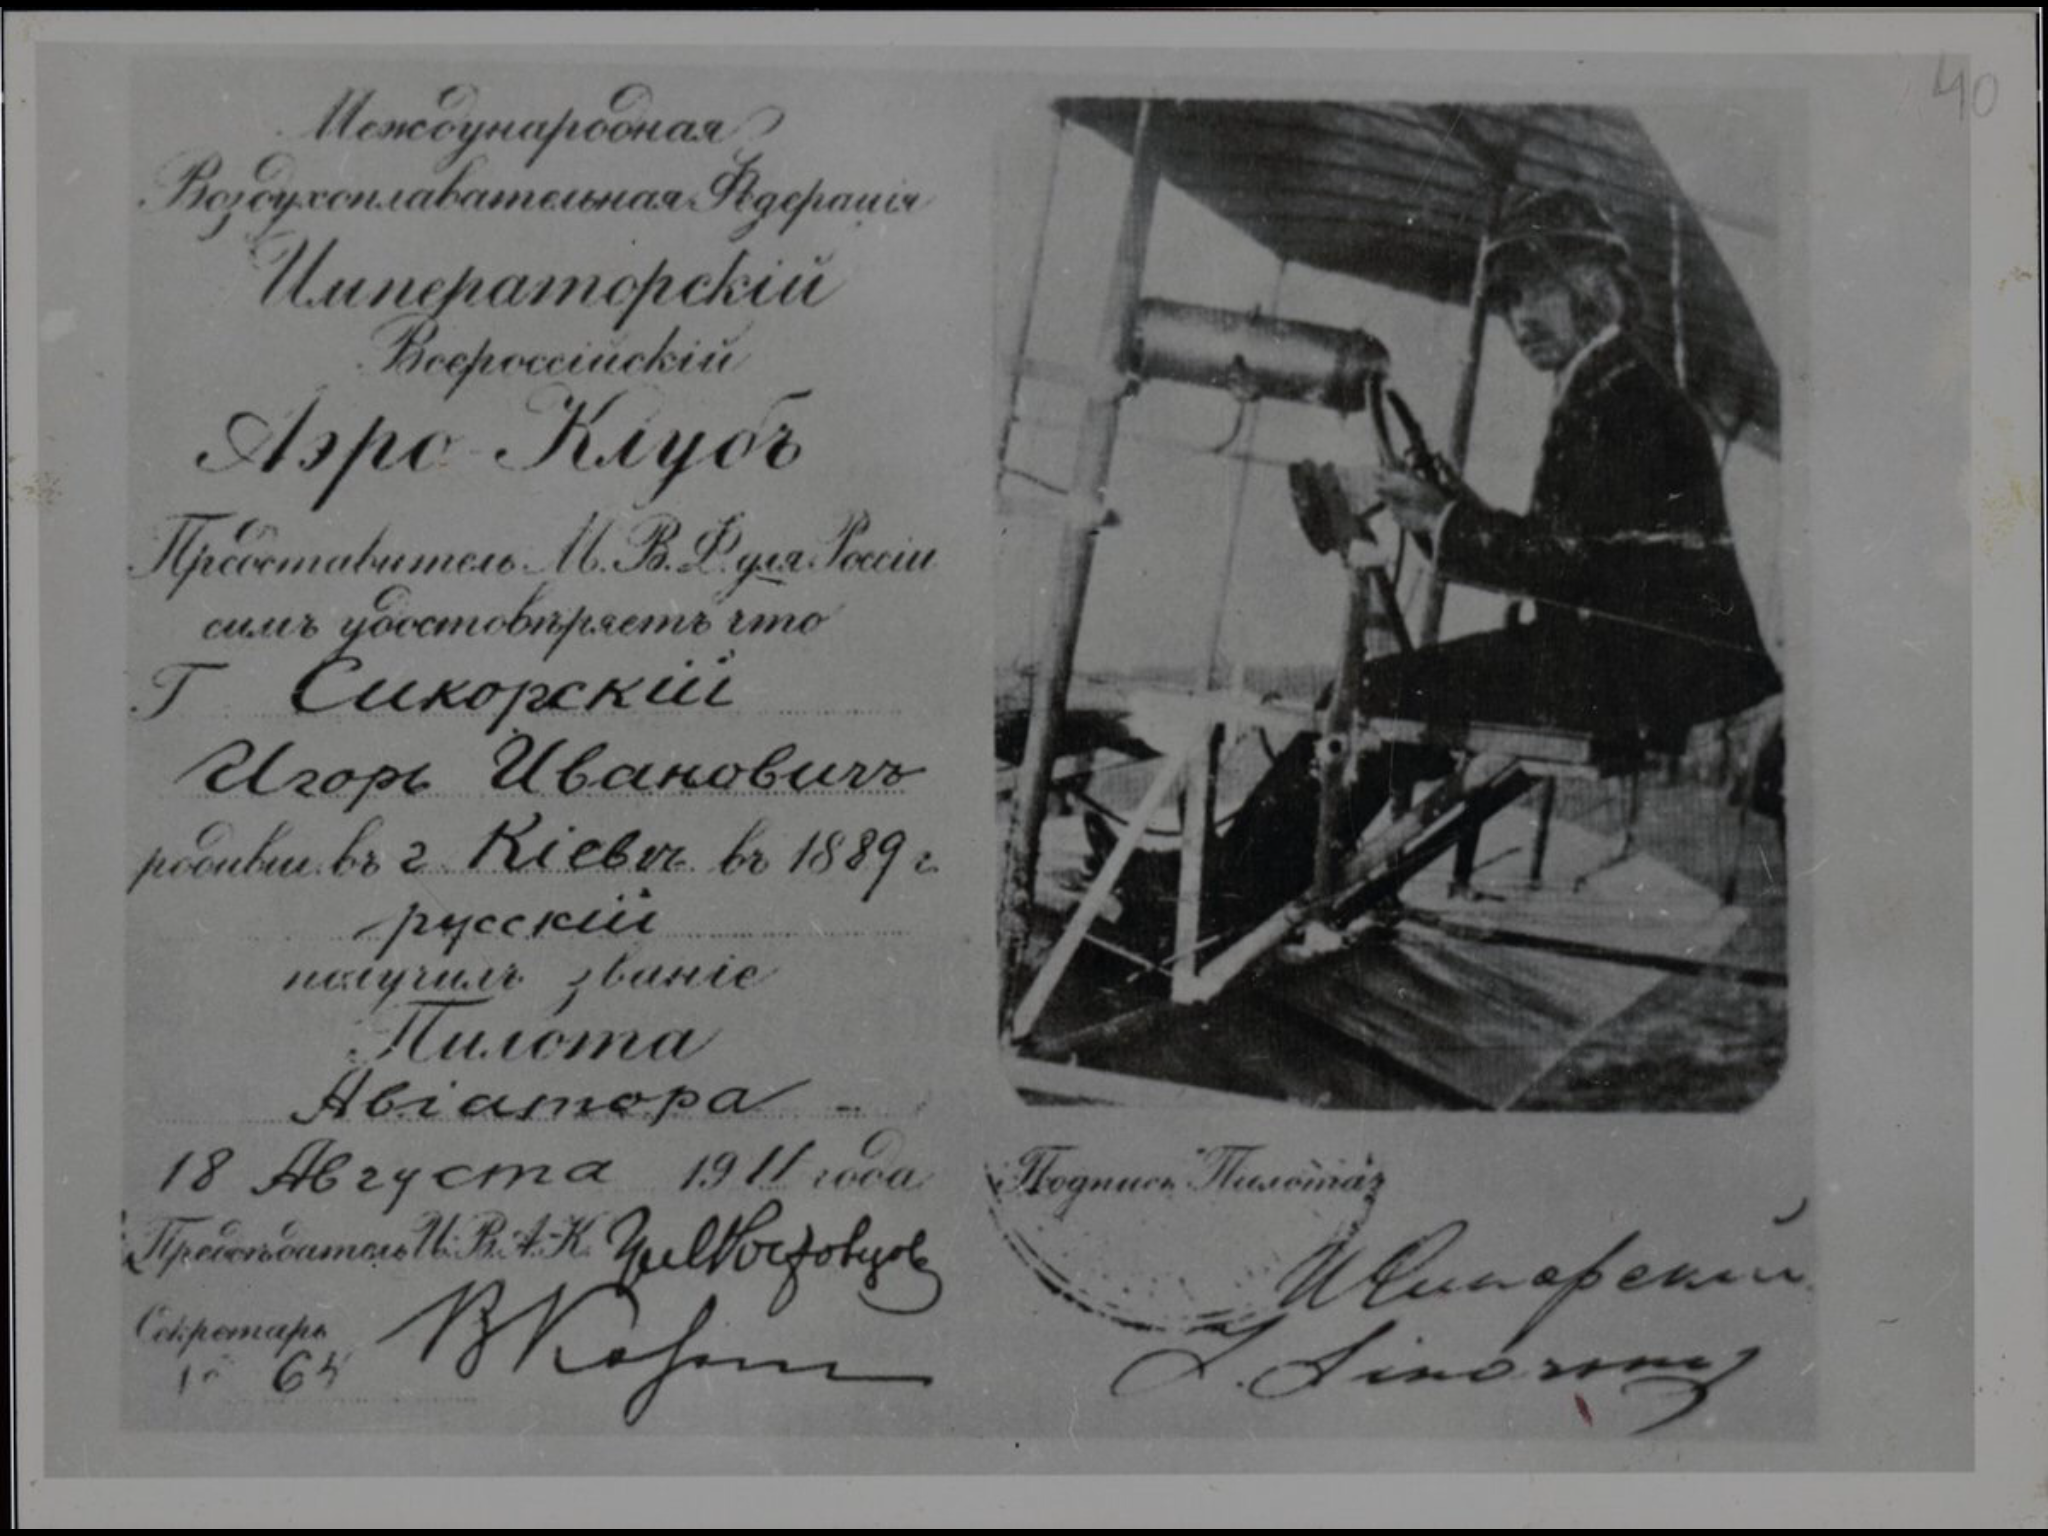 Международная
Воздухоплавательная Федерація
Императорскій
Всероссійскій
Аэро-Клубъ
Представитель М. В. Ф. для Россіи
симъ удостовѣряетъ что
Г Сикорскій
Игорь Ивановичъ
родивш. въ г. Кіевѣ въ 1889 г.
русскій
получилъ званіе
Пилота
Авіатора
18 Августа 1911 года
Предсѣдатель И. В. А. К.
Секретарь
64
40
Подпись Пилота
ИСикорский
I. Sikorsky